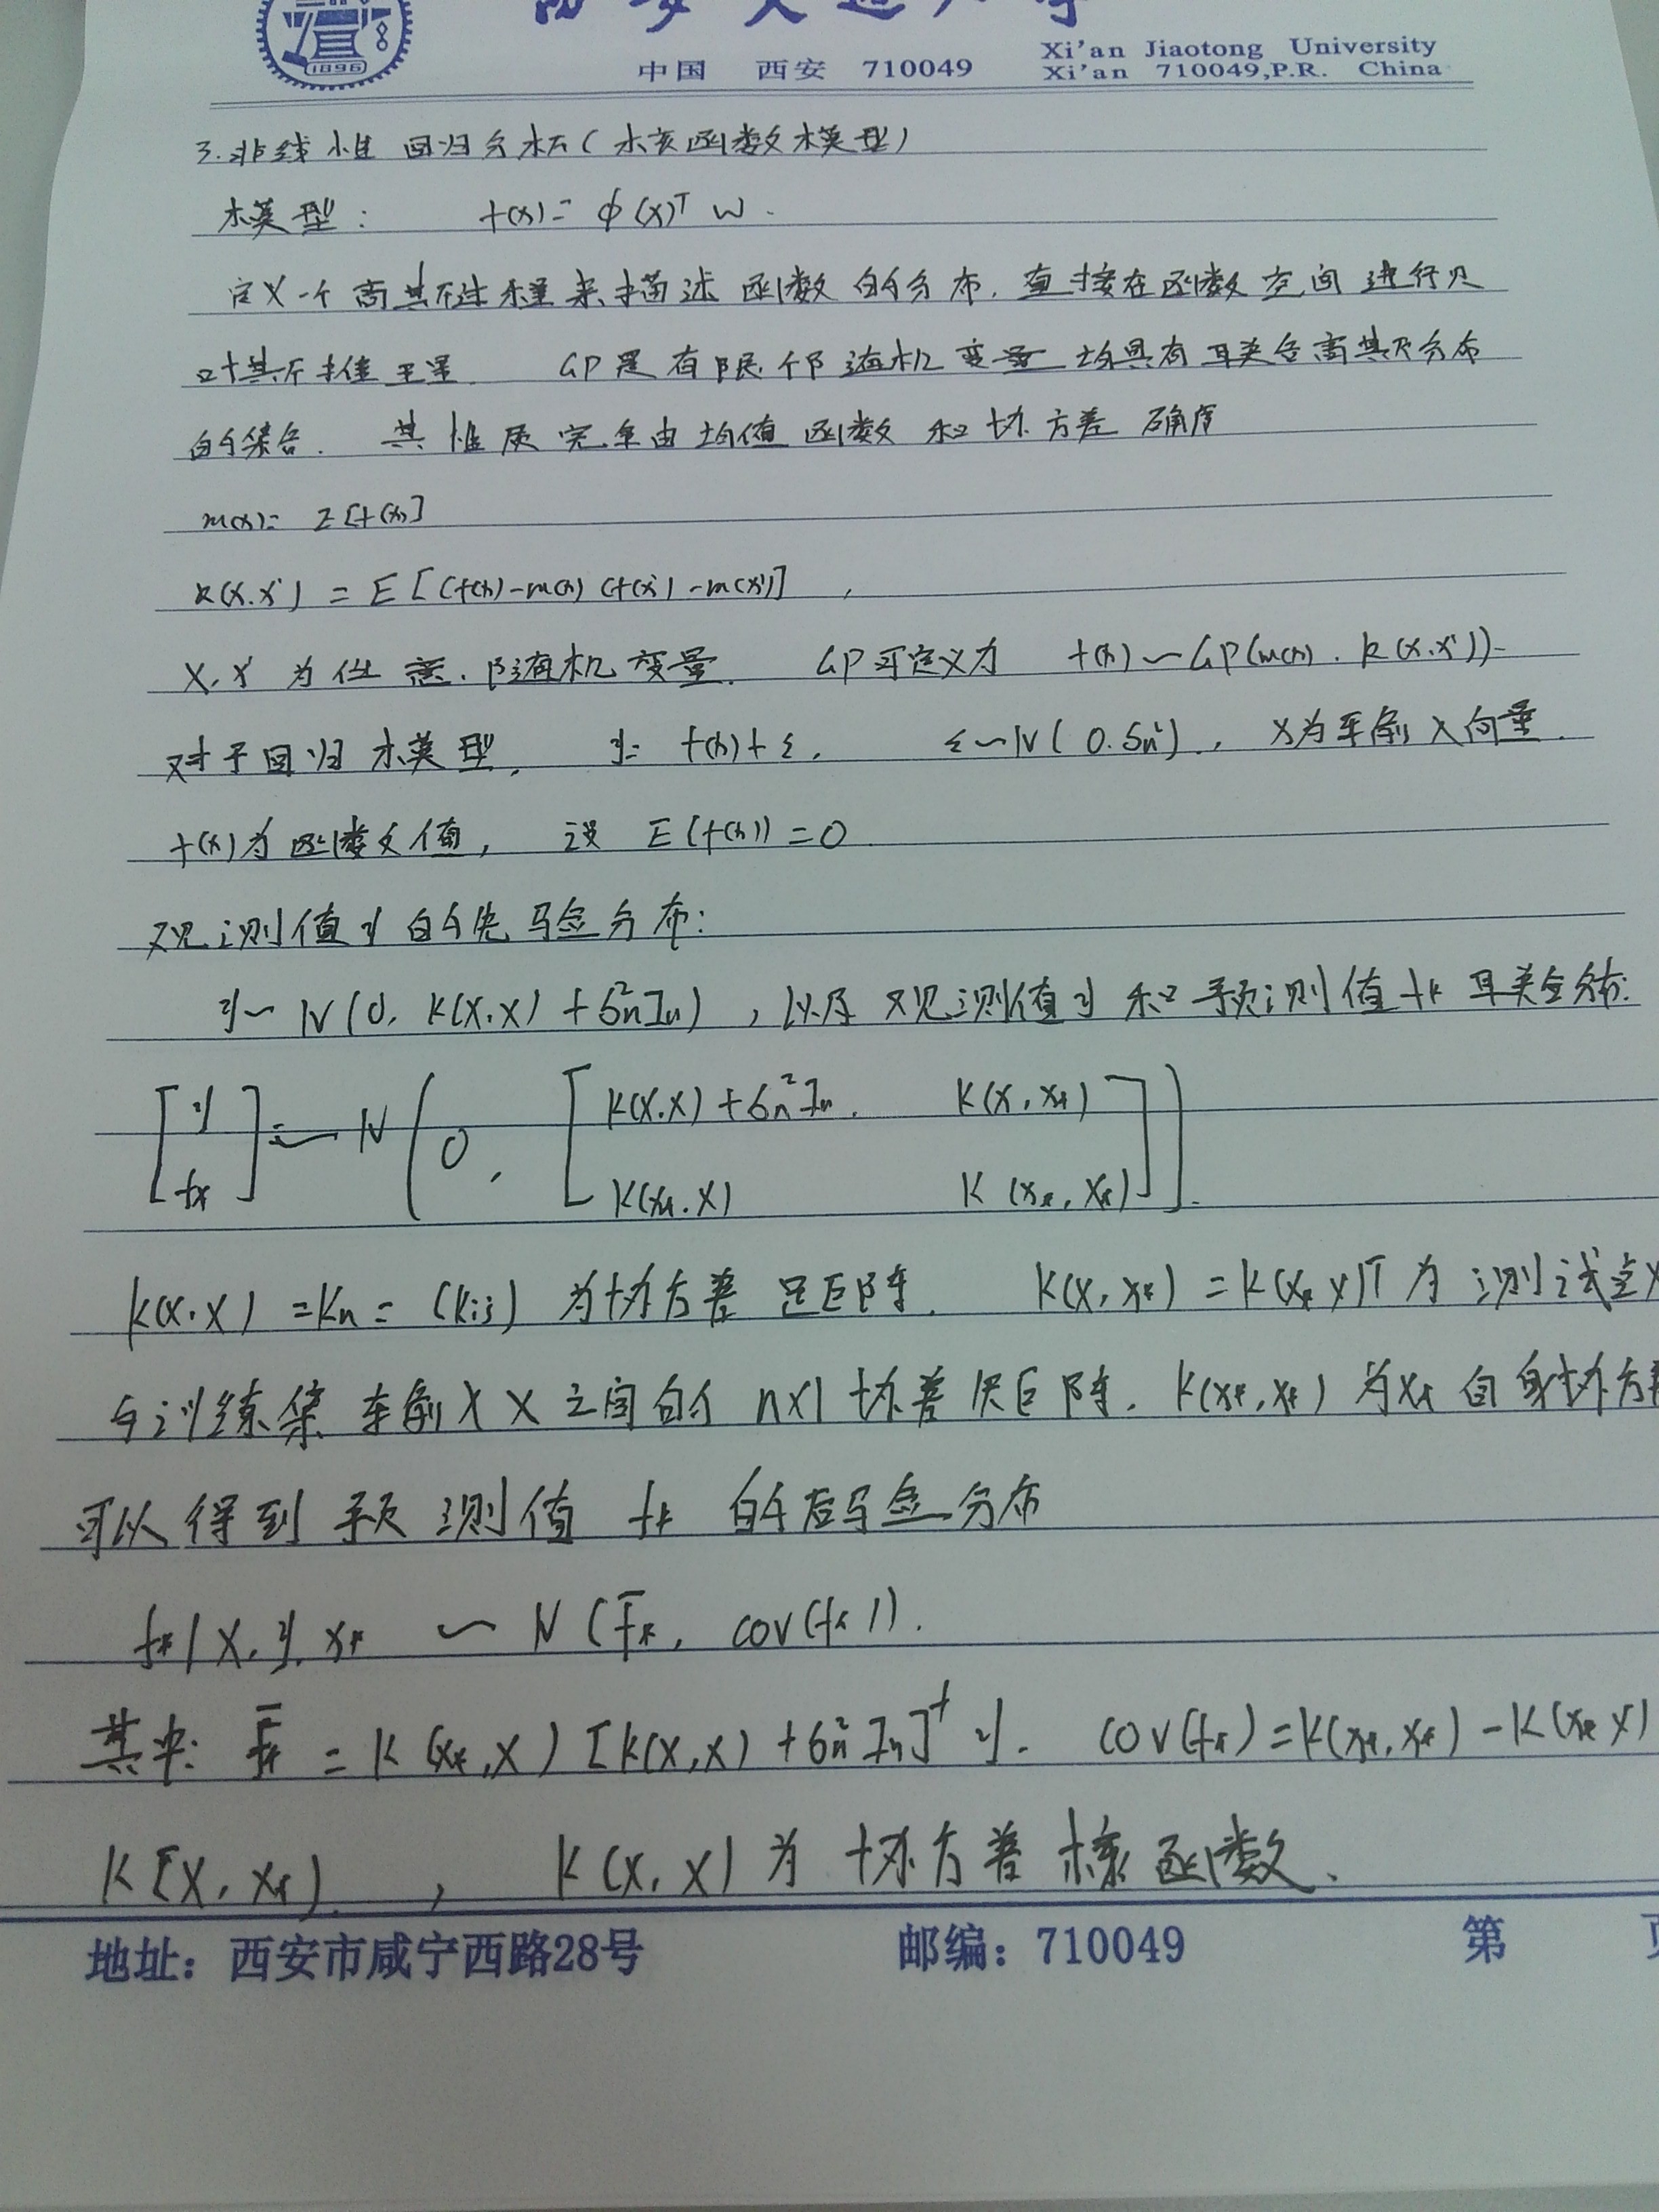 中国 西安 710049
Xi'an Jiaotong University
Xi'an 710049,P.R. China
1896
3.非线性回归分析(核函数模型)
模型: f(x)= φ(x)ᵀ w.
定义一个高斯过程来描述函数的分布,直接在函数空间进行贝
叶斯推理. GP是有限个随机变量均具有联合高斯分布
的集合. 其性质完全由均值函数和协方差确定
m(x)= E[f(x)]
k(x.x') = E[(f(x)-m(x)(f(x')-m(x')],
x,x' 为任意.随机变量. GP可定义为 f(x)~GP(m(x).k(x.x')).
对于回归模型, y= f(x)+ε, ε~N(0.δn²)., X为车俞入向量.
f(x)为函数值, 设 E(f(x))=0.
观测值y的先验分布:
y~N(0, K(X.X)+δn²In), 以及观测值y和预测值f* 联合分布:
[y f*] ~ N(0, [K(X.X)+δn²In. K(X,x*) K(x*.X) K(x*,x*)]).
K(X.X)=Kn=(kij)为协方差矩阵. K(X,x*)=K(x* X)ᵀ为测试点x
与训练集车俞入X之间的n×1协差矩阵. K(x*,x*)为x*自身协方差
可以得到预测值 f* 的后验分布
f*|X,y,x* ~ N(f̄*, cov(f*)).
其中: f̄* = K(x*,X)[K(X,X)+δn²In]⁻¹ y. cov(f*)=K(x*,x*)-K(x* X)
K[X,x*). , K(X,X)为协方差核函数.
地址:西安市咸宁西路28号 邮编:710049 第 页